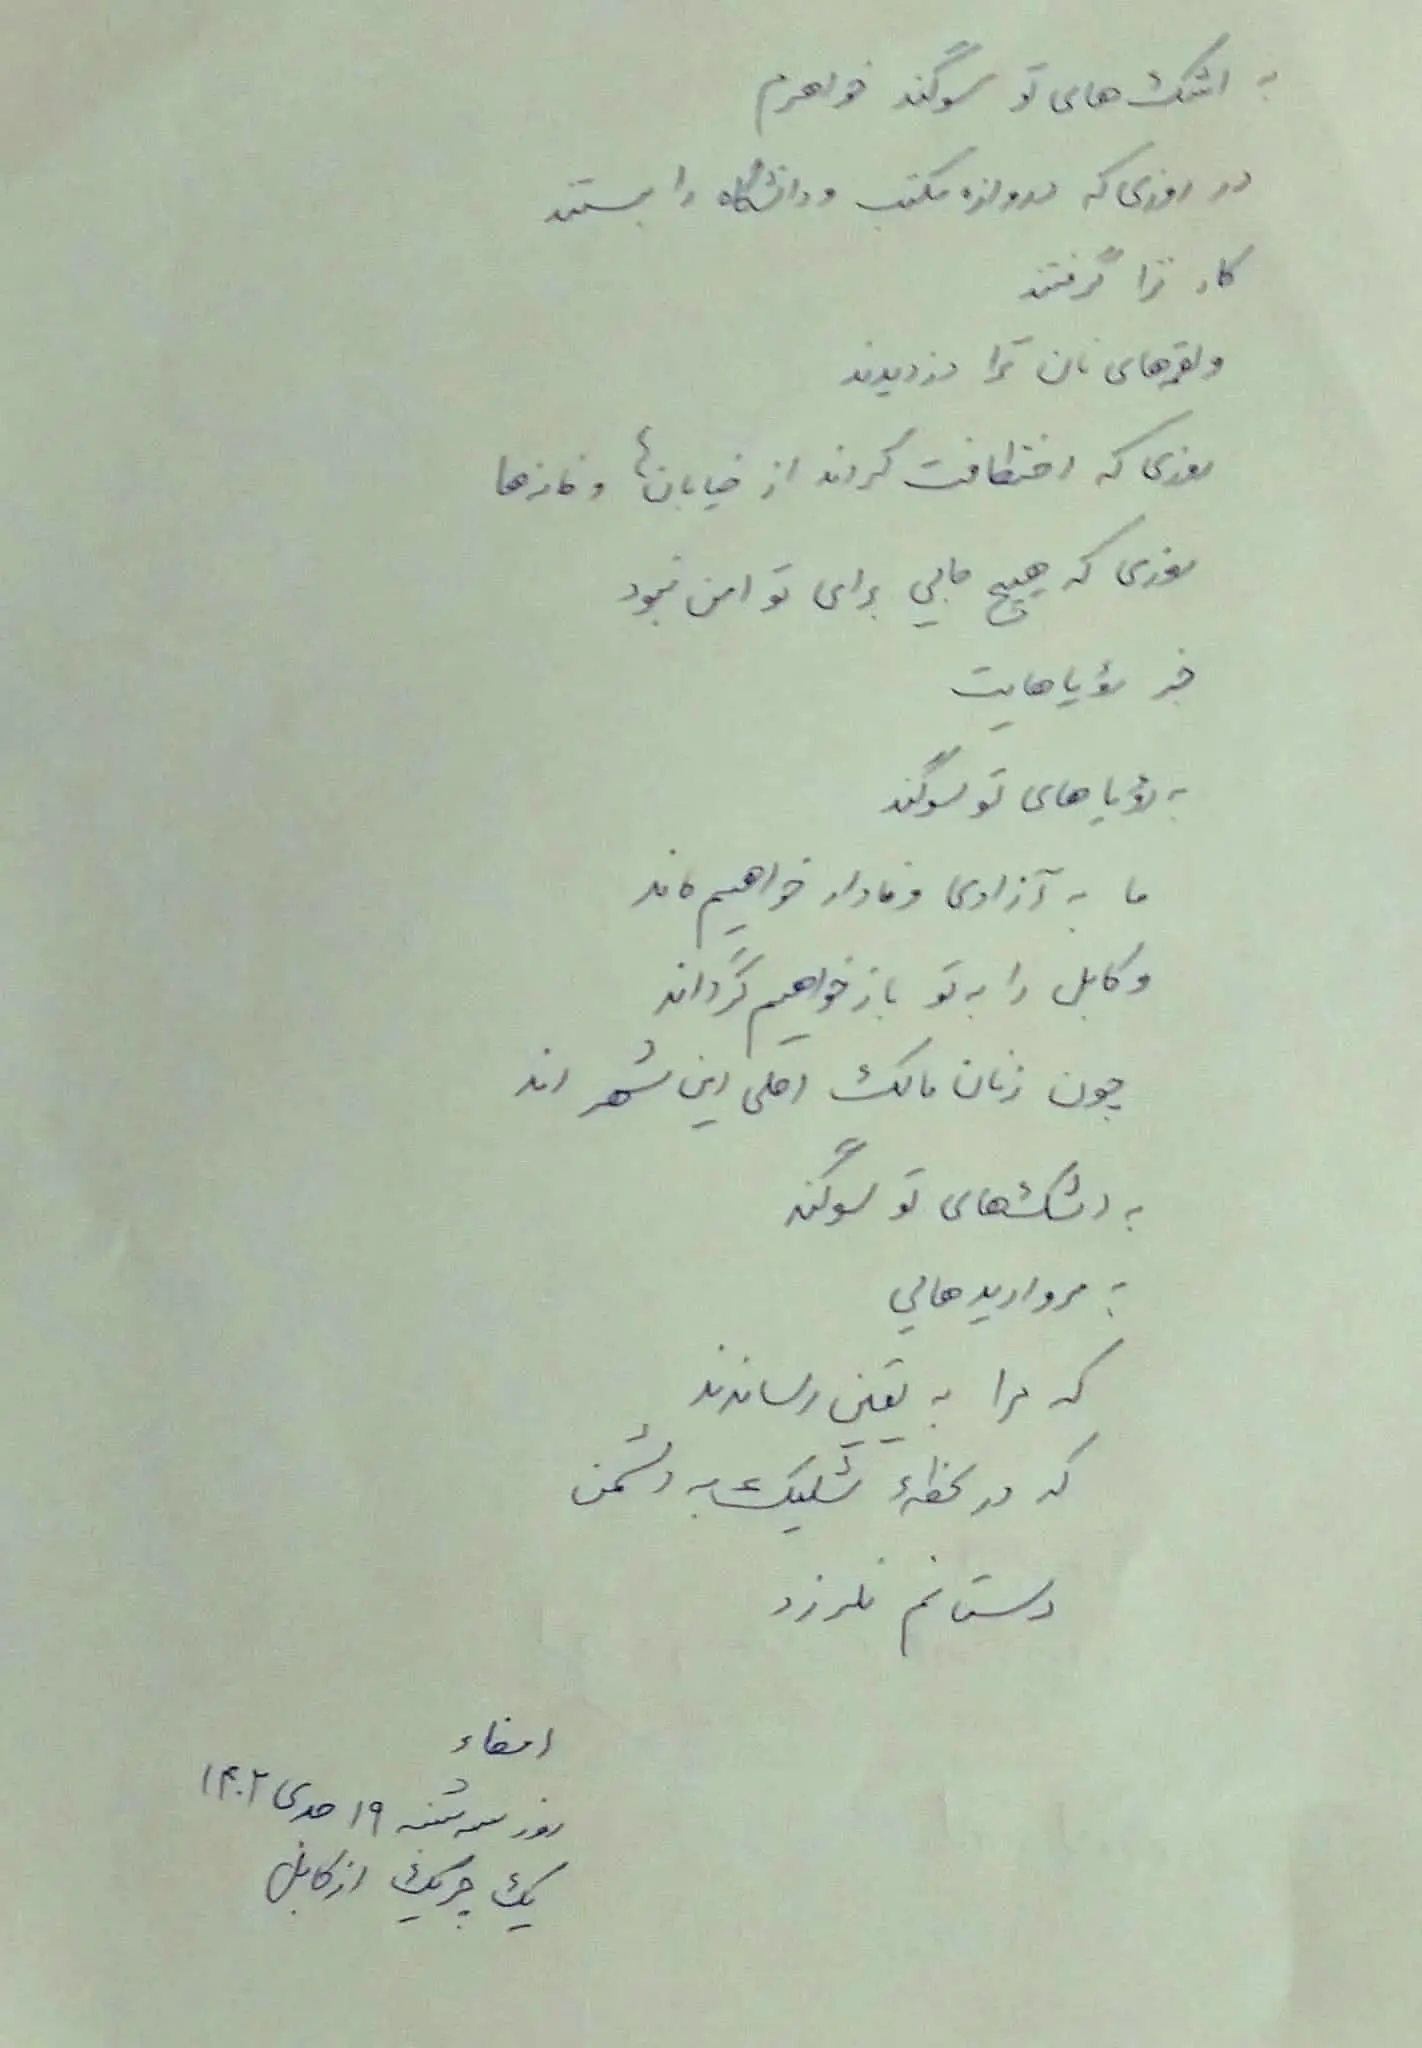 به اشک‌های تو سوگند خواهرم
در روزی که دروازه مکتب و دانشگاه را بستند
کار ترا گرفتند
و لقمه‌های نان ترا دزدیدند
روزی که اختطافت کردند از خیابان‌ها و خانه‌ها
روزی که هیچ جایی برای تو امن نبود
جز رؤیاهایت
به رؤیاهای تو سوگند
ما به آزادی وفادار خواهیم ماند
و کابل را به تو باز خواهیم گرداند
چون زنان مالک اصلی این شهر اند
به اشک‌های تو سوگند
به مرواریدهایی
که مرا به یقین رساندند
که در لحظهٔ شلیک به دشمن
دستانم نلرزد
امضاء
روز سه شنبه ۱۹ جدی ۱۴۰۲
یک چریک از کابل